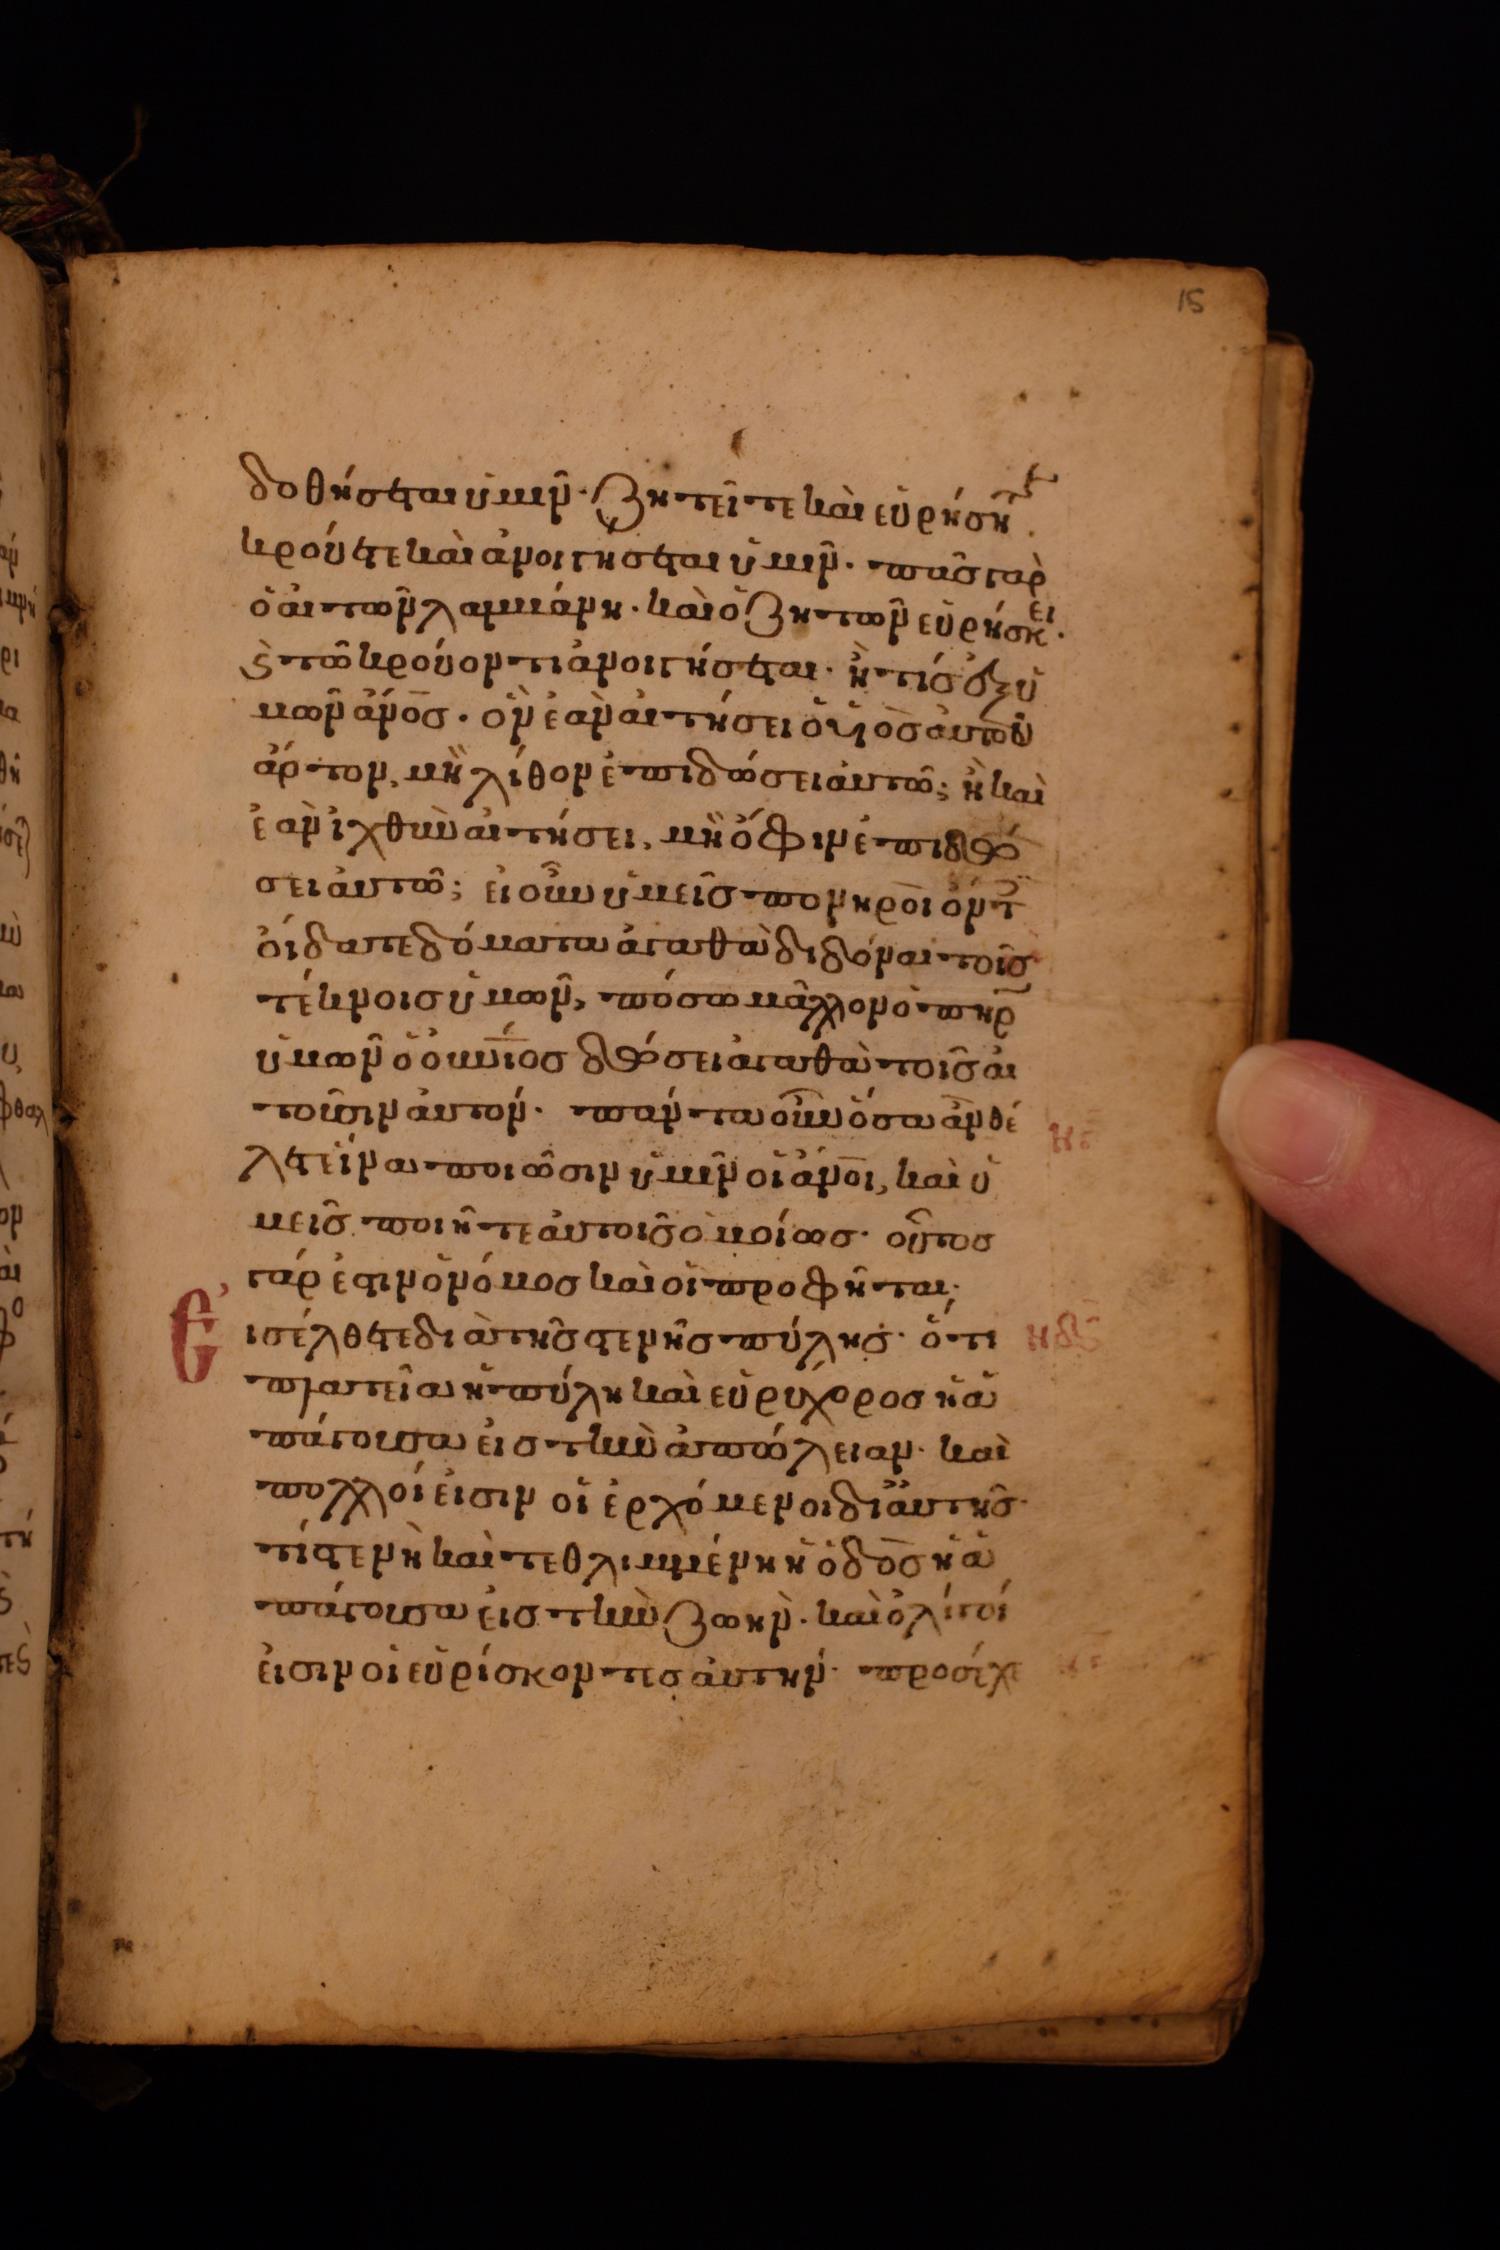 15
δοθήσεται ὑμῖν· ζητεῖτε καὶ εὑρήσητε
κρούετε καὶ ἀνοιγήσεται ὑμῖν· πᾶς γὰρ
ὁ αἰτῶν λαμβάνει· καὶ ὁ ζητῶν εὑρήσκει·
ϗ τῶ κρούοντι ἀνοιγήσεται· ἢ τίς ἐξ ὑ
μῶν ἄν̅ος· ὃν ἐὰν αἰτήσει ὁ υἱὸς αὐτοῦ
ἄρτον, μὴ λίθον ἐπιδώσει αὐτῶ; ἢ καὶ
ἐὰν ἰχθὺν αἰτήσει, μὴ ὄφιν ἐπιδώ
σει αὐτῶ; εἰ οὖν ὑμεῖς πονηροὶ ὄντ
οἴδατε δόματα ἀγαθὰ διδόναι τοῖς
τέκνοις ὑμῶν, πόσω μᾶλλον ὁ π̅η̅ρ
ὑμῶν ὁ οὐν̅ιος δώσει ἀγαθὰ τοῖς αἰ
τοῦσιν αὐτόν· πάντα οὖν ὅσα ἂν θέ
λετε ἵνα ποιῶσιν ὑμῖν οἱ ἄν̅οι, καὶ ὑ
μεῖς ποιῆτε αὐτοῖς ὁμοίως· οὗτος
γάρ ἐστιν ὁ νόμος καὶ οἱ προφῆται·
Ε
ισέλθετε διὰ τῆς στενῆς πύλης· ὅτι
πλατεῖα ἡ πύλη καὶ εὐρύχορος ἡ ἀ
πάγουσα εἰς τὴν ἀπώλειαν· καὶ
πολλοί εἰσιν οἱ ἐρχόμενοι δι' αὐτῆς·
τί στενὴ καὶ τεθλιμμένη ἡ ὁδὸς ἡ ἀ
πάγουσα εἰς τὴν ζωήν· καὶ ὀλίγοι
εἰσιν οἱ εὑρίσκοντες αὐτήν· προσέχε